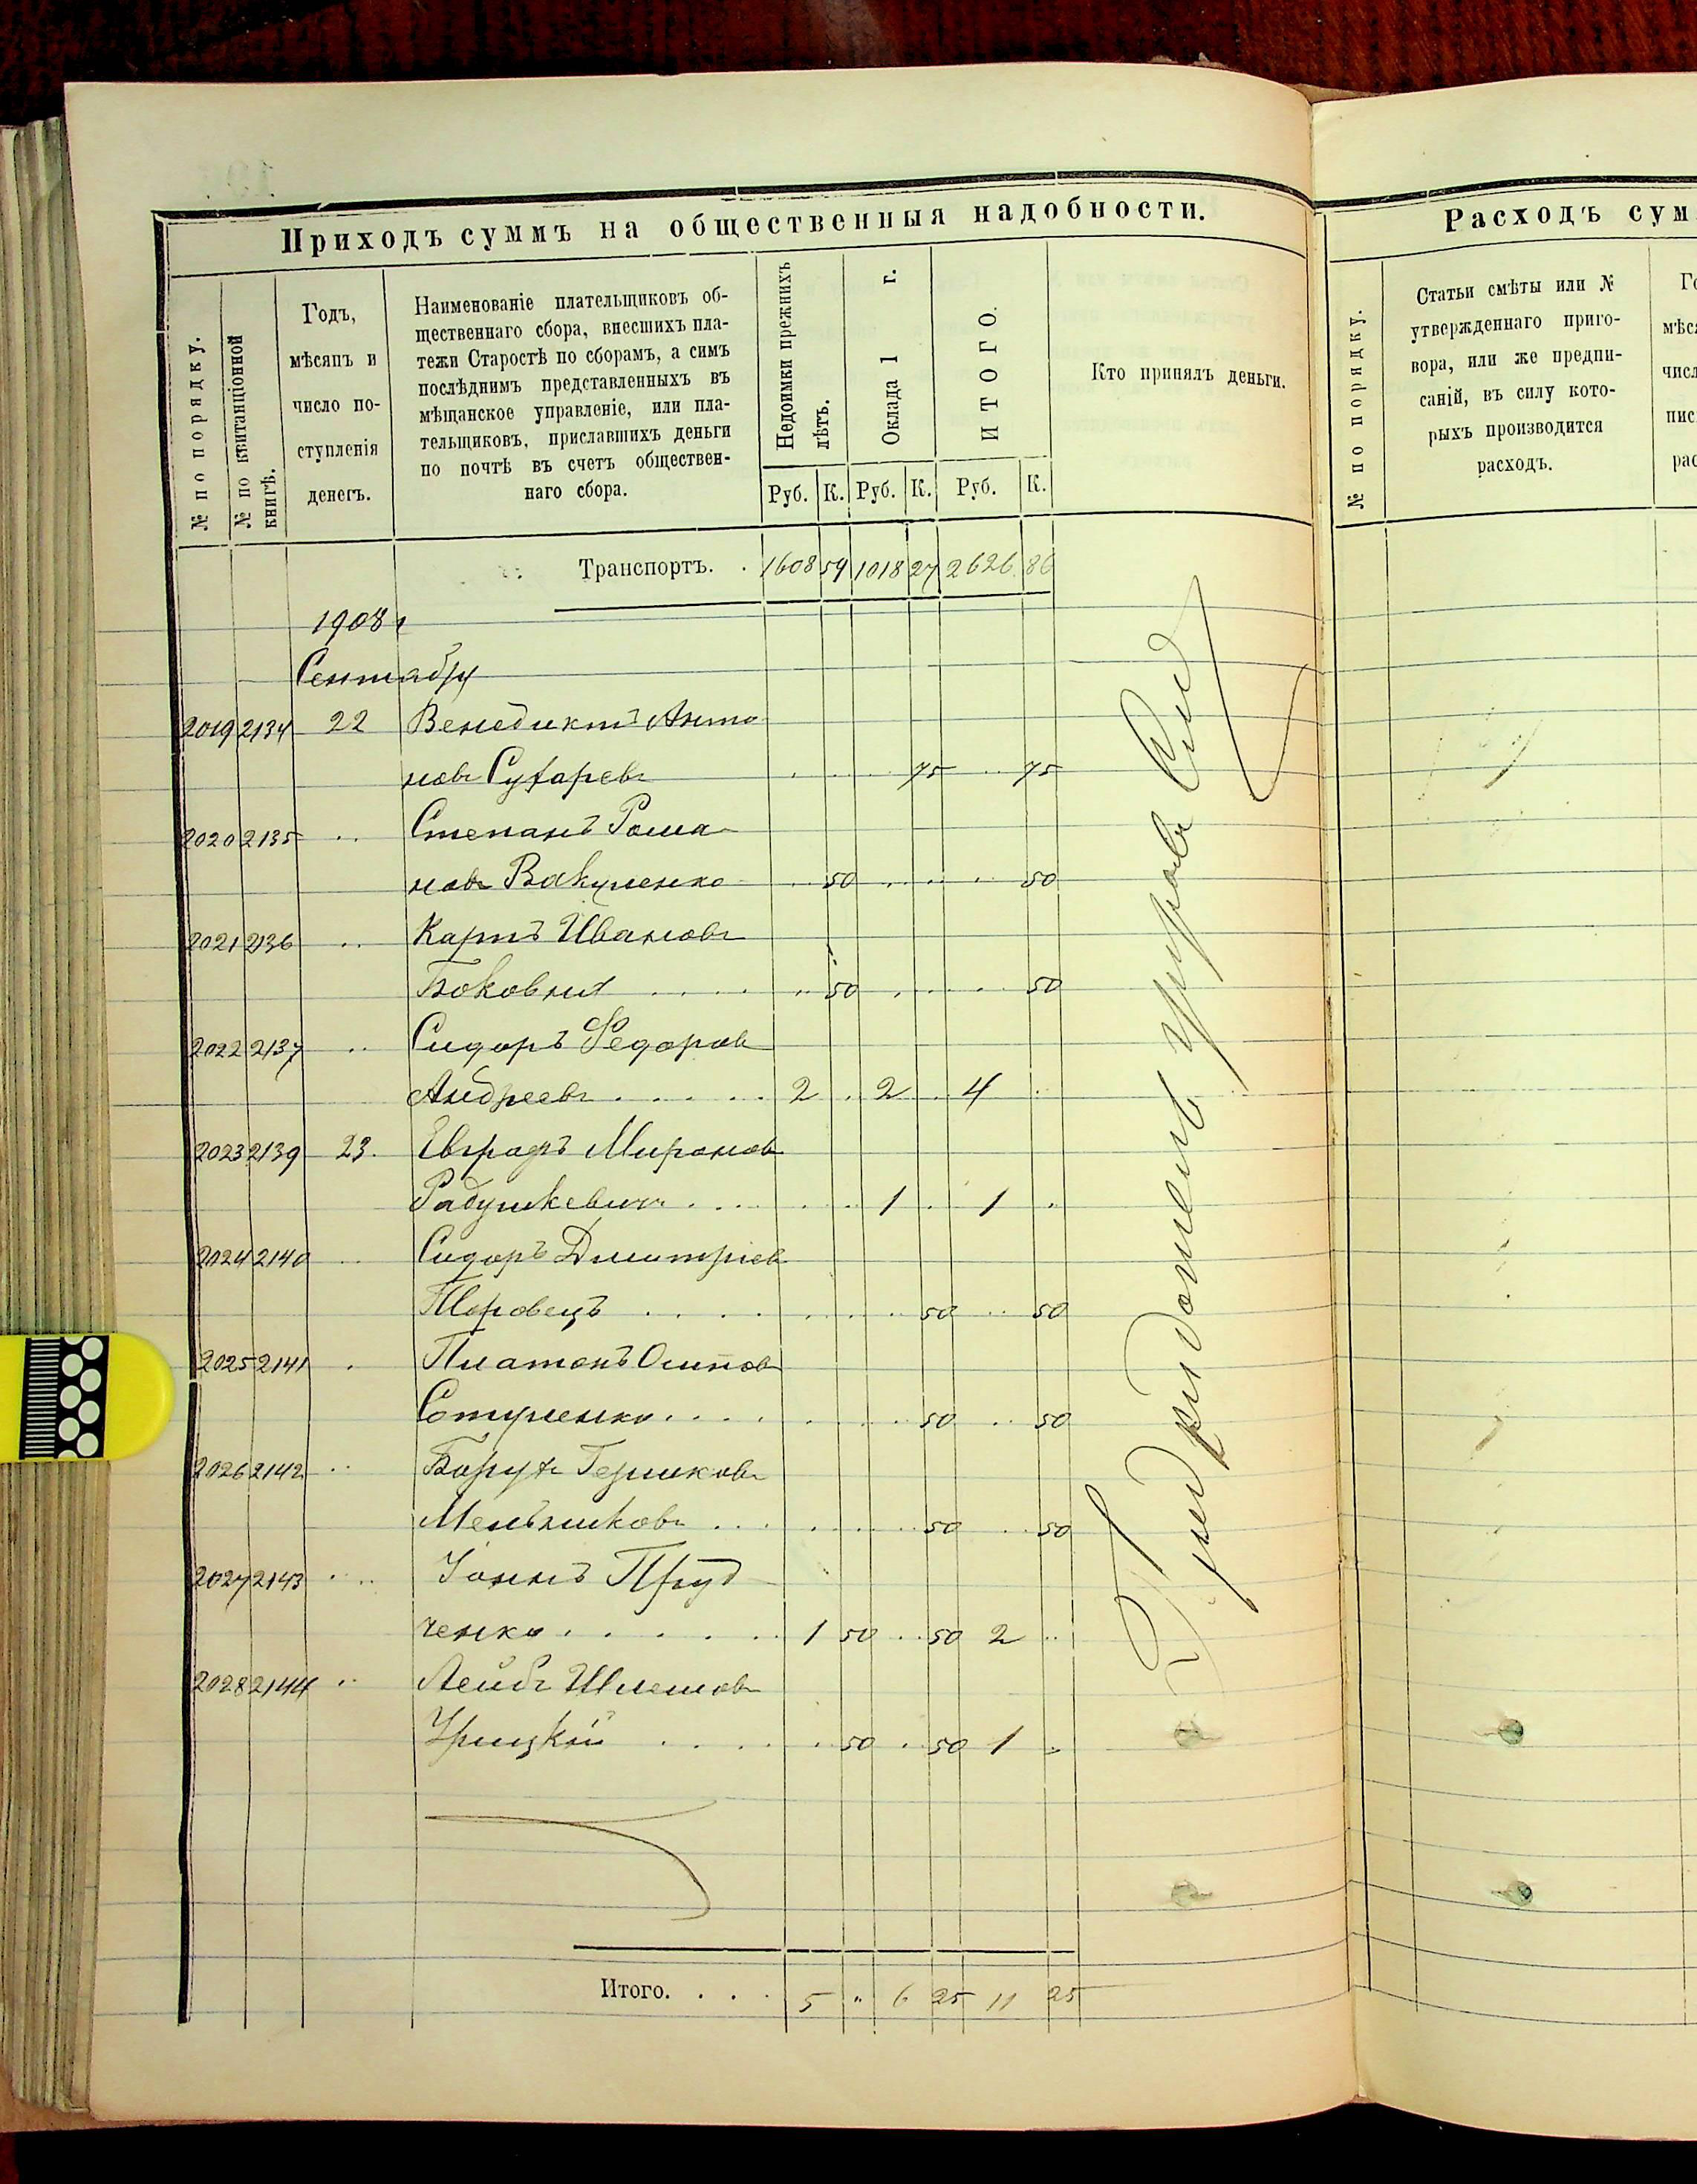 Приходъ суммъ на общественныя надобности.
№ по порядку.
№ по квитанціонной книгѣ.
Годъ,
мѣсяцъ и
число по-
ступленія
денегъ.
Наименованіе плательщиковъ об-
щественнаго сбора, внесшихъ пла-
тежи Старостѣ по сборамъ, а симъ
послѣднимъ представленныхъ въ
мѣщанское управленіе, или пла-
тельщиковъ, приславшихъ деньги
по почтѣ въ счетъ обществен-
наго сбора.
Недоимки прежнихъ
лѣтъ.
Оклада 1 г.
ИТОГО.
Кто принялъ деньги.
Руб. К. Руб. К. Руб. К.
Транспортъ. . 1608 59 1018 27 2626 86
1908 г
Сентября
2019 2134 22 Венедиктъ Анто
новъ Сухаревъ 75 75
2020 2135 .. Степанъ Рома
новъ Вакуленко 50 50
2021 2136 .. Карпъ Ивановъ
Боковня .... 50 50
2022 2137 .. Сидоръ Федоровъ
Андреевъ ..... 2 . 2 . 4 .
2023 2139 23. Мироновъ
Радушкевичъ .... 1 . 1 ..
2024 2140 .. Сидоръ Дмитріевъ
.... 50 .. 50
2025 2141 . Платонъ Осиповъ
.... 50 .. 50
2026 2142 .. Борухъ Гершковъ
Мельниковъ ... 50 .. 50
2027 2143 .. Іоннъ Пруд
ченко ...... 1 50 .. 50 2 ..
2028 2144 .. Лейба Шлемовъ
Урицкій .... 50 . 50 1 ..
Итого. . . . 5 „ 6 25 11 25
Расходъ сум
№ по порядку.
Статьи смѣты или №
утвержденнаго приго-
вора, или же предпи-
саній, въ силу кото-
рыхъ производится
расходъ.